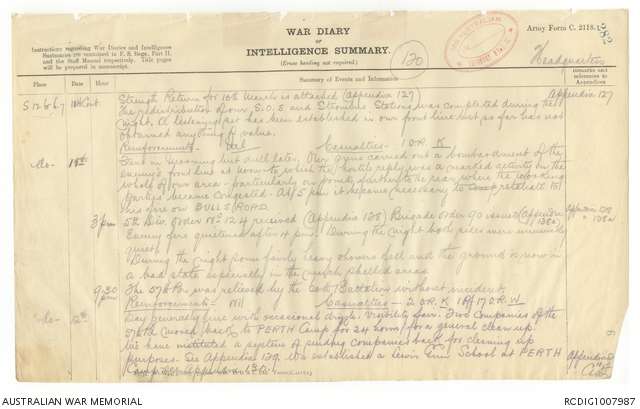 WAR DIARY
or
INTELLIGENCE SUMMARY.
(Erase heading not required.)
Army Form C. 2118.
282
120
Headquarters
Instructions regarding War Diaries and Intelligence
Summaries are contained in F. S. Regs., Part II.
and the Staff Manual respectively. Title pages
will be prepared in manuscript.
Place
Date
Hour
Summary of Events and Information
Remarks and
references to
Appendices
Strength Return for 10th March is attached (Appendix 127)
Appendix 127
The distribution of our S.O.S and Strombos Stations was completed during the
night. A listening set has been established in our front line but so far has not
obtained anything of value.
Reinforcements - Nil Casualties - 1 O.R. K
Do. 11th
Dawn in morning but dull later. Our guns carried out a bombardment of the
enemy's front line at noon to which the hostile reply was a marked activity on the
whole of our area - particularly on points further to the rear where the working
parties became congested. At 5 pm it became necessary to retaliate to
fire on BULLS ROAD.
3 pm 5th Div. Order No 124 received (Appendix 128) Brigade Order 90 issued (Appendix
128a)
Enemy fire quietened after 4 pm. During the night both sides were unusually
quiet.
During the night some fairly heavy showers fell and the ground is now in
a bad state especially in the much shelled areas.
9.30 pm The 57th Bn was relieved by the Battalion without incident.
Reinforcements - Nil Casualties - 2 O.R. K 1 Off 17 O.R. W
Do. 12th
Day generally fine with occasional drizzle. Visibility fair. Two Companies of the
57th moved back to PERTH Camp for 24 hours for a general clean up.
We have instituted a system of sending companies back for cleaning up
purposes. See Appendix 129. Also established a Lewis Gun School at PERTH
Camp
AUSTRALIAN WAR MEMORIAL
RCDIG1007987